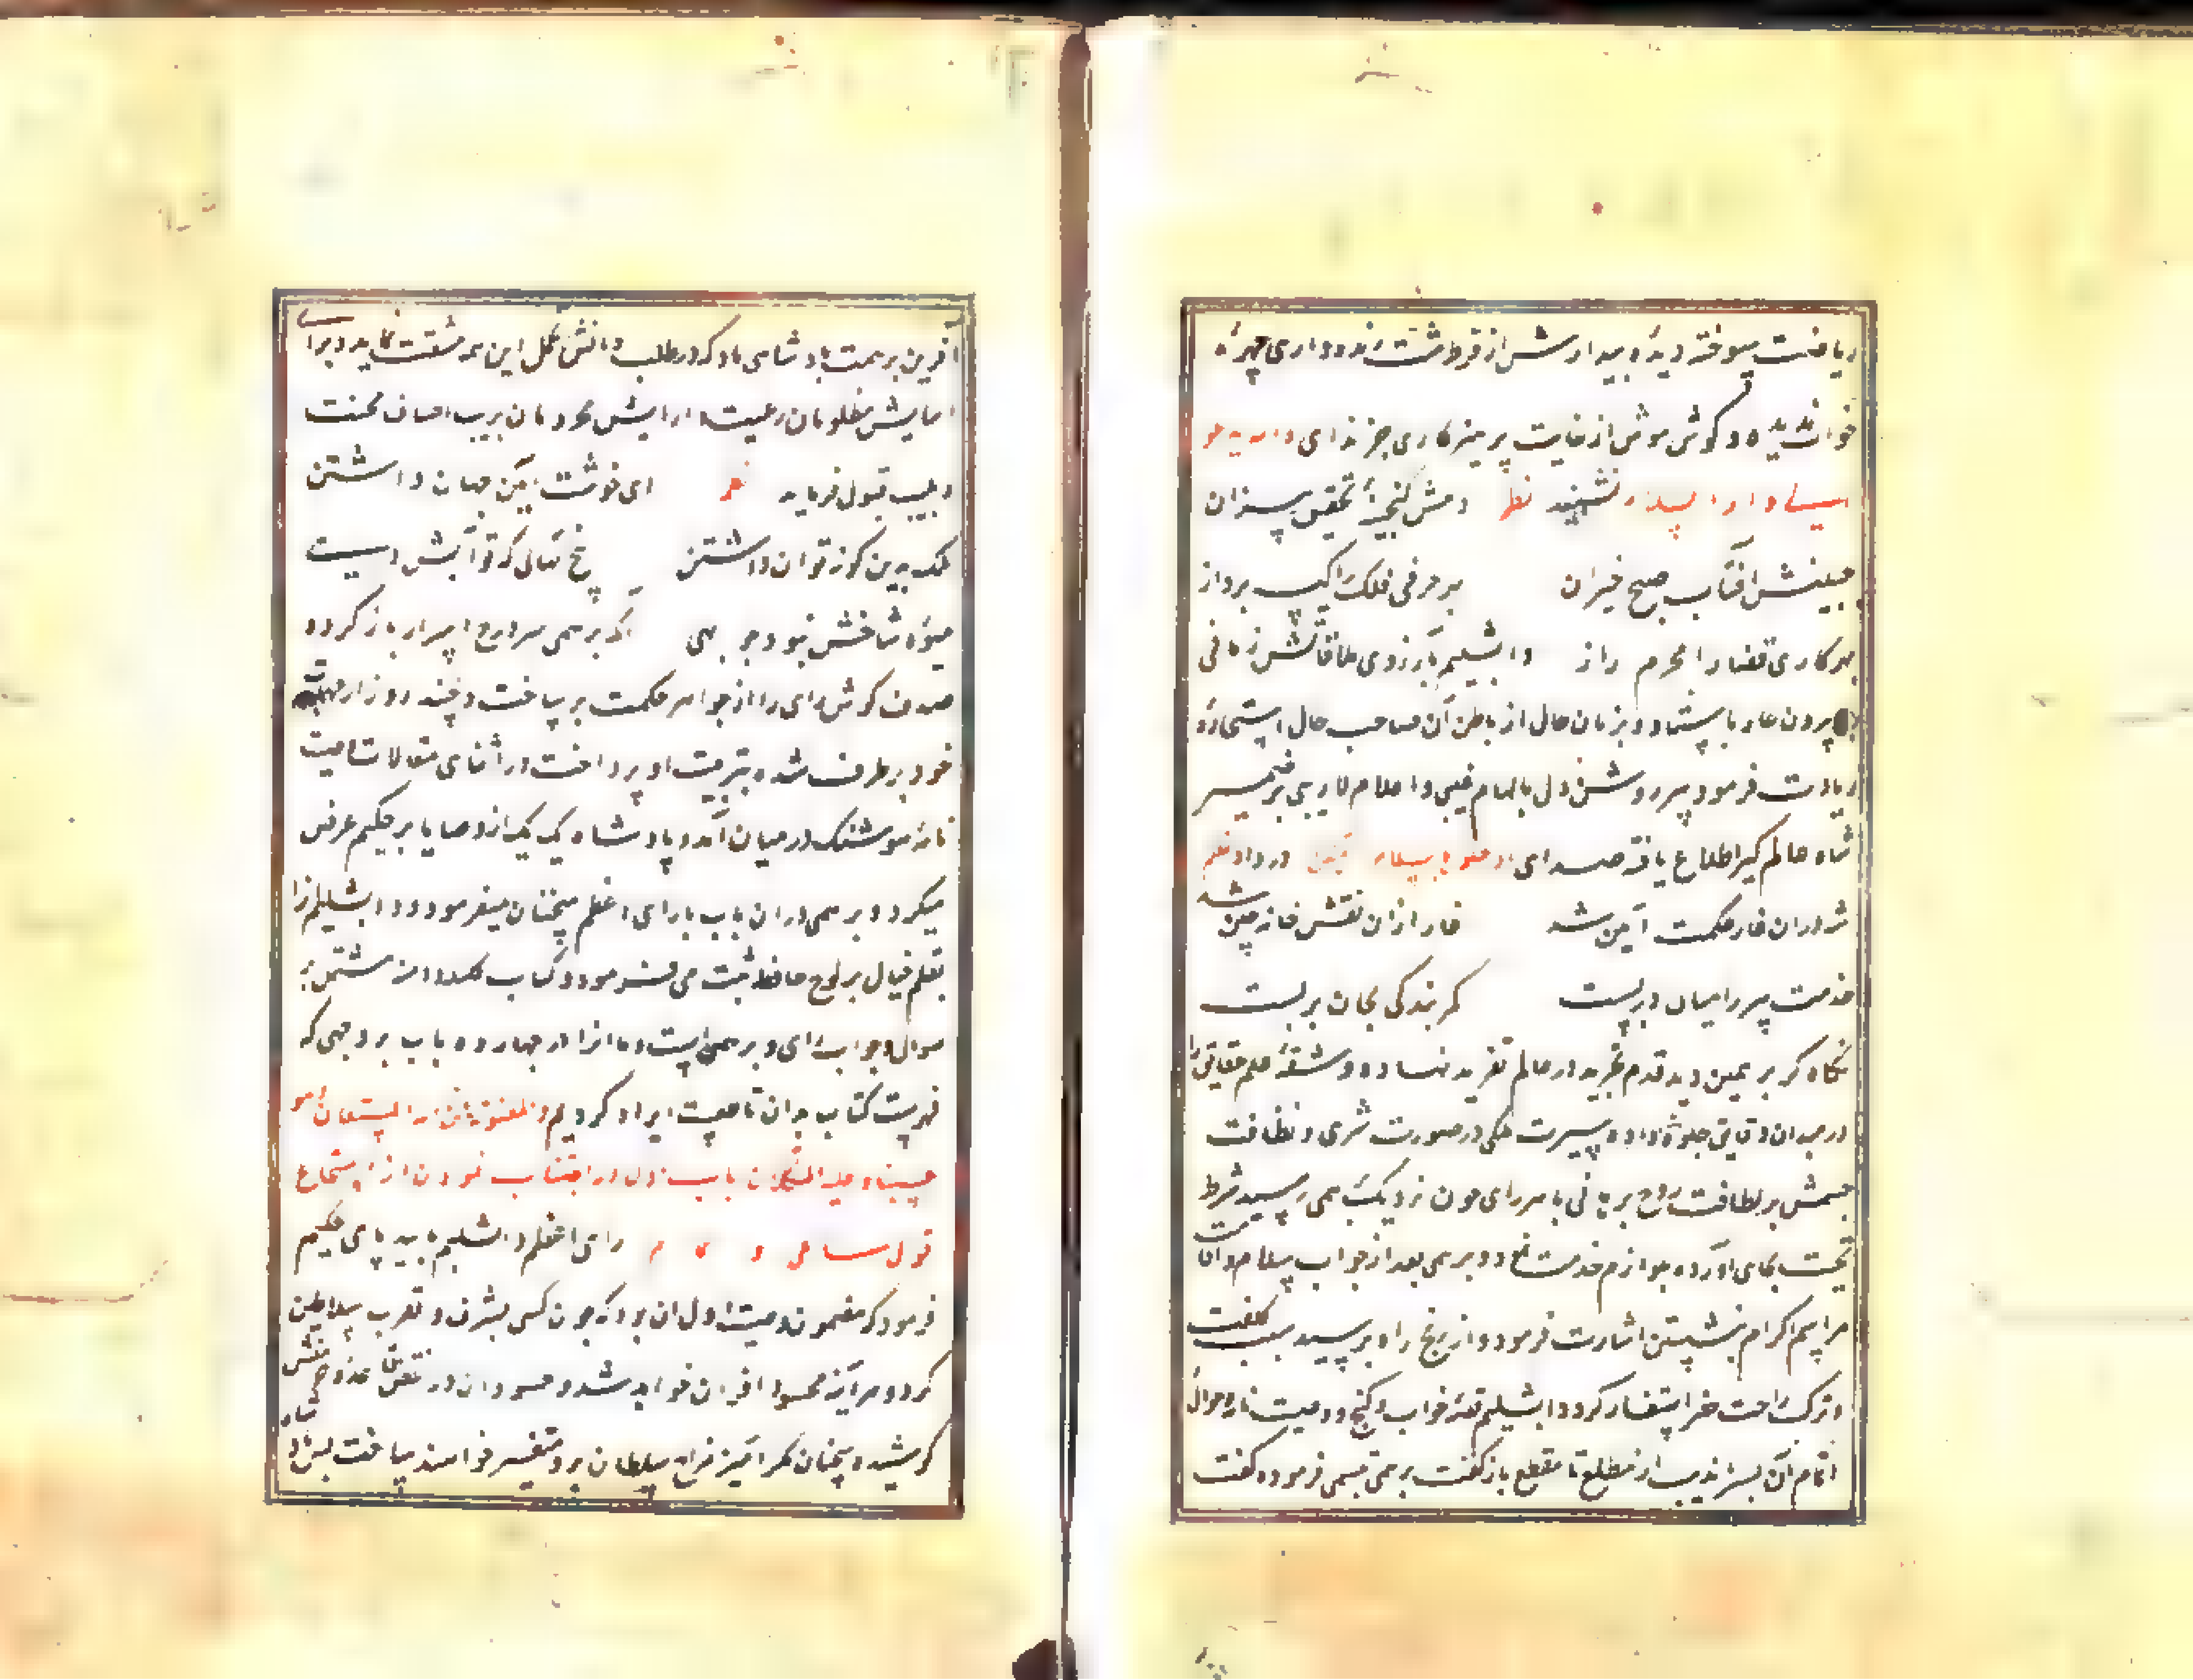 ریاضت سوخته دیده بیدارش از فرط شب زنده‌داری چهره
خواب ندیده و گوش هوش از غایت پرهیزکاری جز ندای والله یدعو
الی دار السلام نشنیده نظم دمش گنجینهٔ تحقیق‌ریزان
جبینش آفتاب صبح خیزان بهر حرفی فلک را
بهر کاری قضا را محرم راز دابشلیم بآرزوی ملاقاتش زمانی
بیرون غار بایستاد و بزبان حال از باطن آن صاحب حال استجازه
زیارت فرمود پیر روشن دل بالهام غیبی و اعلام لاریبی بر ضمیر
شاه عالم گیر اطلاع یافته صدای ادخلوها بسلام آمنین در داد نظم
شه در آن غار حکمت آیین شد غار از آن نقش خانه چین شد
خدمت پیر را میان در بست کمر بندگی بجان بر بست
نگاه کرد برهمنی دید قدم تجرید در عالم تفرید نهاده و شقهٔ علم حقایق را
در میدان دقایق جلوه داده سیرت ملکی در صورت بشری و نظافت
جسمش بر لطافت روح برهانی با هر رای چون نزدیک وی رسید شرط
تحیت بجای آورده بلوازم خدمت نمود و برهمن بعد از جواب سلام و اقامت
مراسم اکرام بنشستن اشارت فرمود و از رنج راه پرسید سبب کلفت
و ترک راحت حضر استفسار کرد دابشلیم قصه خواب و گنج و وصیت نامه و حواله
اتمام آن بسراندیب از مطلع تا مقطع باز گفت برهمن تبسمی فرموده گفت
آفرین بر همت پادشاهی باد که در طلب دانش تحمل این همه مشقت نماید و برای
آسایش مظلومان رعیت و آرایش محرومان بریت اصناف محنت
و بلیت قبول فرماید نظم ای خوشت آیین جهان داشتن
ملک بدین گونه توان داشتن بیخ نهالی که تو آبش دهیست
میوه شاخش نبود جز بهی آنکه برهمن سر درج اسرار باز کرده
صدف گوش رای را از جواهر حکمت پر ساخت و چند روز از مهمات
خود بر طرف شده بتربیت او پرداخت در اثنای مقالات وصیت
نامهٔ هوشنگ در میان آمد و پادشاه یک یک از وصایا بر حکیم عرض
میکرد و برهمن در آن باب با رای اعظم سخنان میفرمود و دابشلیم آنرا
بقلم خیال بر لوح حافظه ثبت می فرمود و کتاب کلیله و دمنه مشتمل بر
سوال و جواب رای و برهمن است و ما آنرا در چهارده باب بر وجهی که
فهرست کتاب بدان ناطقست ایراد کردیم و المعونة من الله المستعان هو
حسبنا و علیه التکلان باب اول در اجتناب نمودن از استماع
قول ساعی و نمام رای اعظم دابشلیم با بیدپای حکیم
فرمود که مضمون وصیت اول آن بود که چون کسی بشرف و تقرب سلاطین
گردد هر آینه محسود اقران خواهد شد و حسودان در نقض قاعدهٔ حرمتش
کوشیده بسخنان مکر آمیز مزاج سلطان برو متغیر خواهند ساخت پس پادشاه